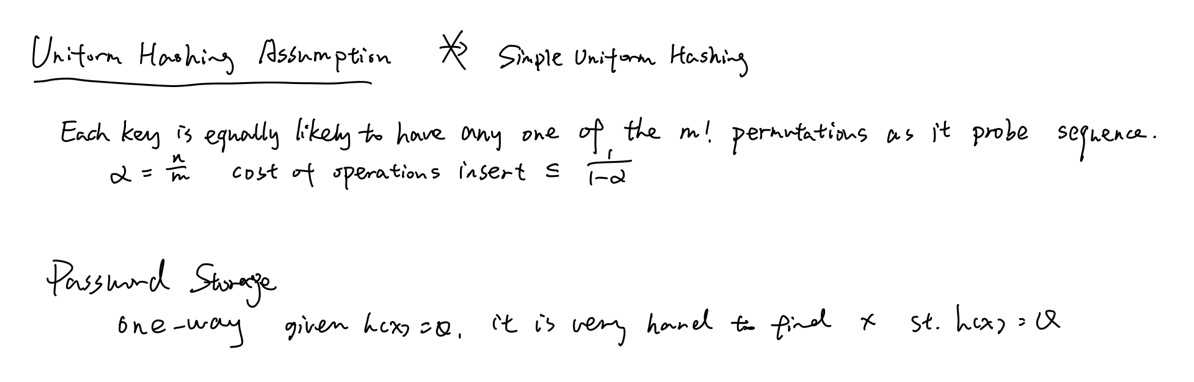 Uniform Hashing Assumption ⇏ Simple Uniform Hashing
Each key is equally likely to have any one of the m! permutations as it probe sequence.
α = n/m cost of operations insert ≤ 1/(1-α)
Password Storage
one-way given h(x) = Q, it is very hard to find x st. h(x) = Q